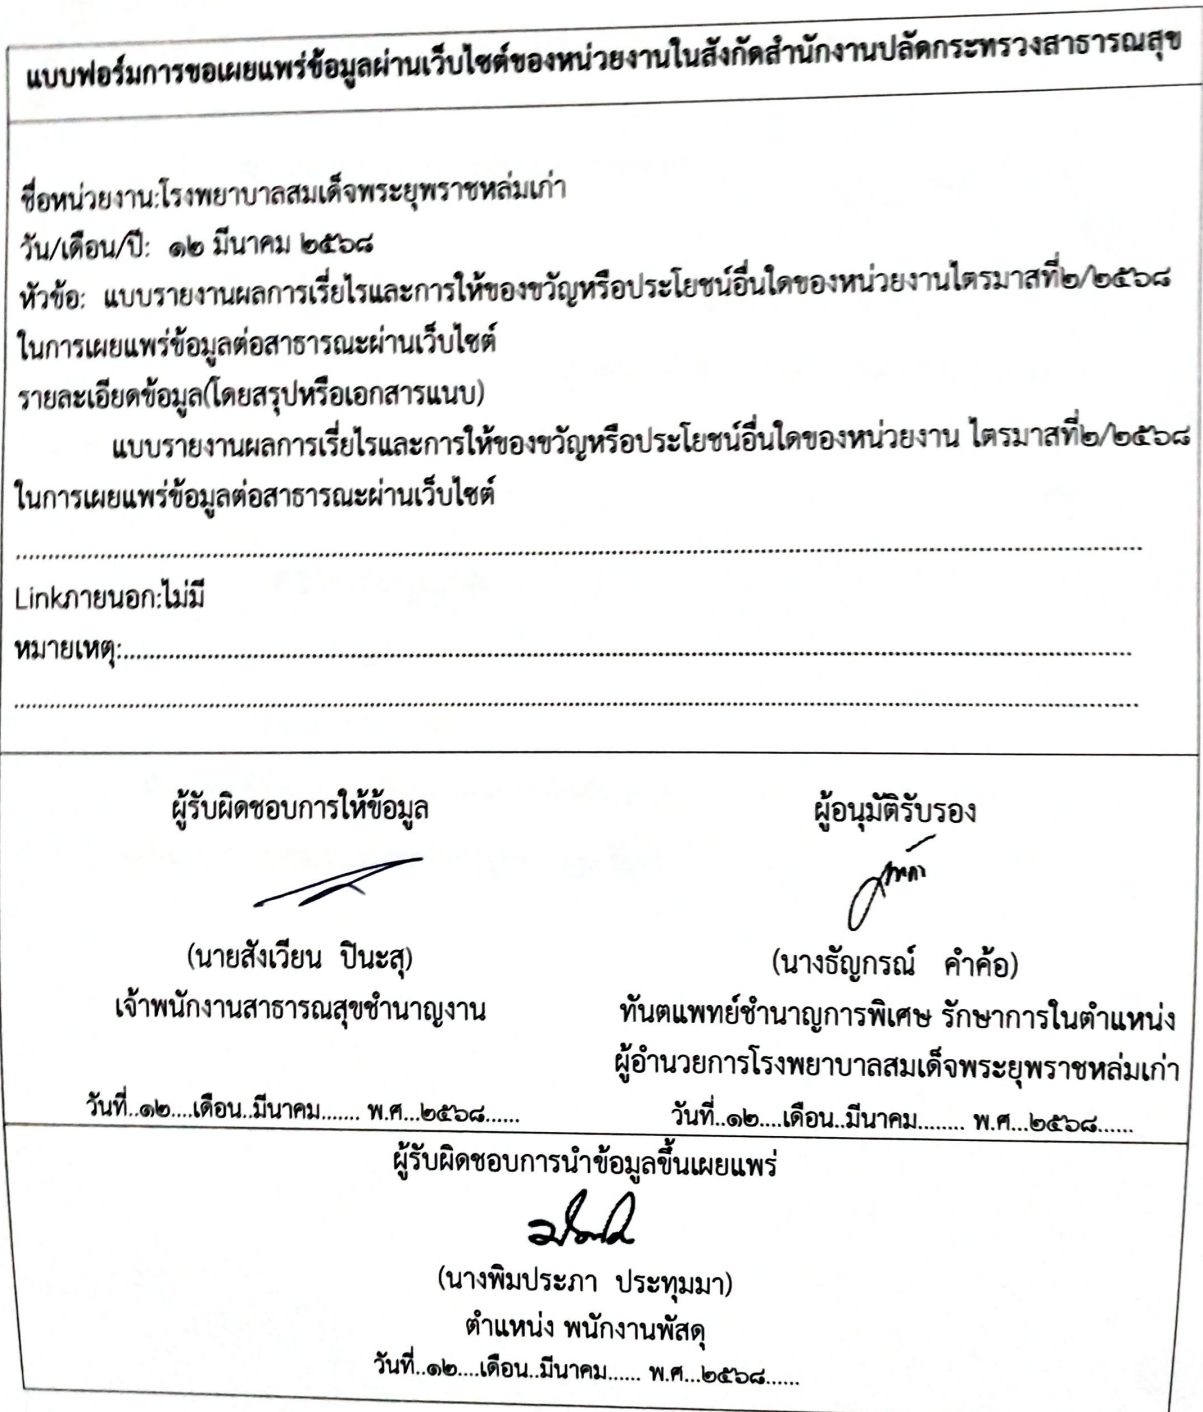 แบบฟอร์มการขอเผยแพร่ข้อมูลผ่านเว็บไซต์ของหน่วยงานในสังกัดสำนักงานปลัดกระทรวงสาธารณสุข
ชื่อหน่วยงาน:โรงพยาบาลสมเด็จพระยุพราชหล่มเก่า
วัน/เดือน/ปี: ๑๒ มีนาคม ๒๕๖๘
หัวข้อ: แบบรายงานผลการเรี่ยไรและการให้ของขวัญหรือประโยชน์อื่นใดของหน่วยงานไตรมาสที่๒/๒๕๖๘
ในการเผยแพร่ข้อมูลต่อสาธารณะผ่านเว็บไซต์
รายละเอียดข้อมูล(โดยสรุปหรือเอกสารแนบ)
แบบรายงานผลการเรี่ยไรและการให้ของขวัญหรือประโยชน์อื่นใดของหน่วยงาน ไตรมาสที่๒/๒๕๖๘
ในการเผยแพร่ข้อมูลต่อสาธารณะผ่านเว็บไซต์
Linkภายนอก:ไม่มี
หมายเหตุ:
ผู้รับผิดชอบการให้ข้อมูล
(นายสังเวียน ปินะสุ)
เจ้าพนักงานสาธารณสุขชำนาญงาน
วันที่..๑๒....เดือน..มีนาคม....... พ.ศ...๒๕๖๘......
ผู้อนุมัติรับรอง
(นางธัญกรณ์ คำค้อ)
ทันตแพทย์ชำนาญการพิเศษ รักษาการในตำแหน่ง
ผู้อำนวยการโรงพยาบาลสมเด็จพระยุพราชหล่มเก่า
วันที่..๑๒....เดือน..มีนาคม........ พ.ศ...๒๕๖๘......
ผู้รับผิดชอบการนำข้อมูลขึ้นเผยแพร่
(นางพิมประภา ประทุมมา)
ตำแหน่ง พนักงานพัสดุ
วันที่..๑๒....เดือน..มีนาคม...... พ.ศ...๒๕๖๘......